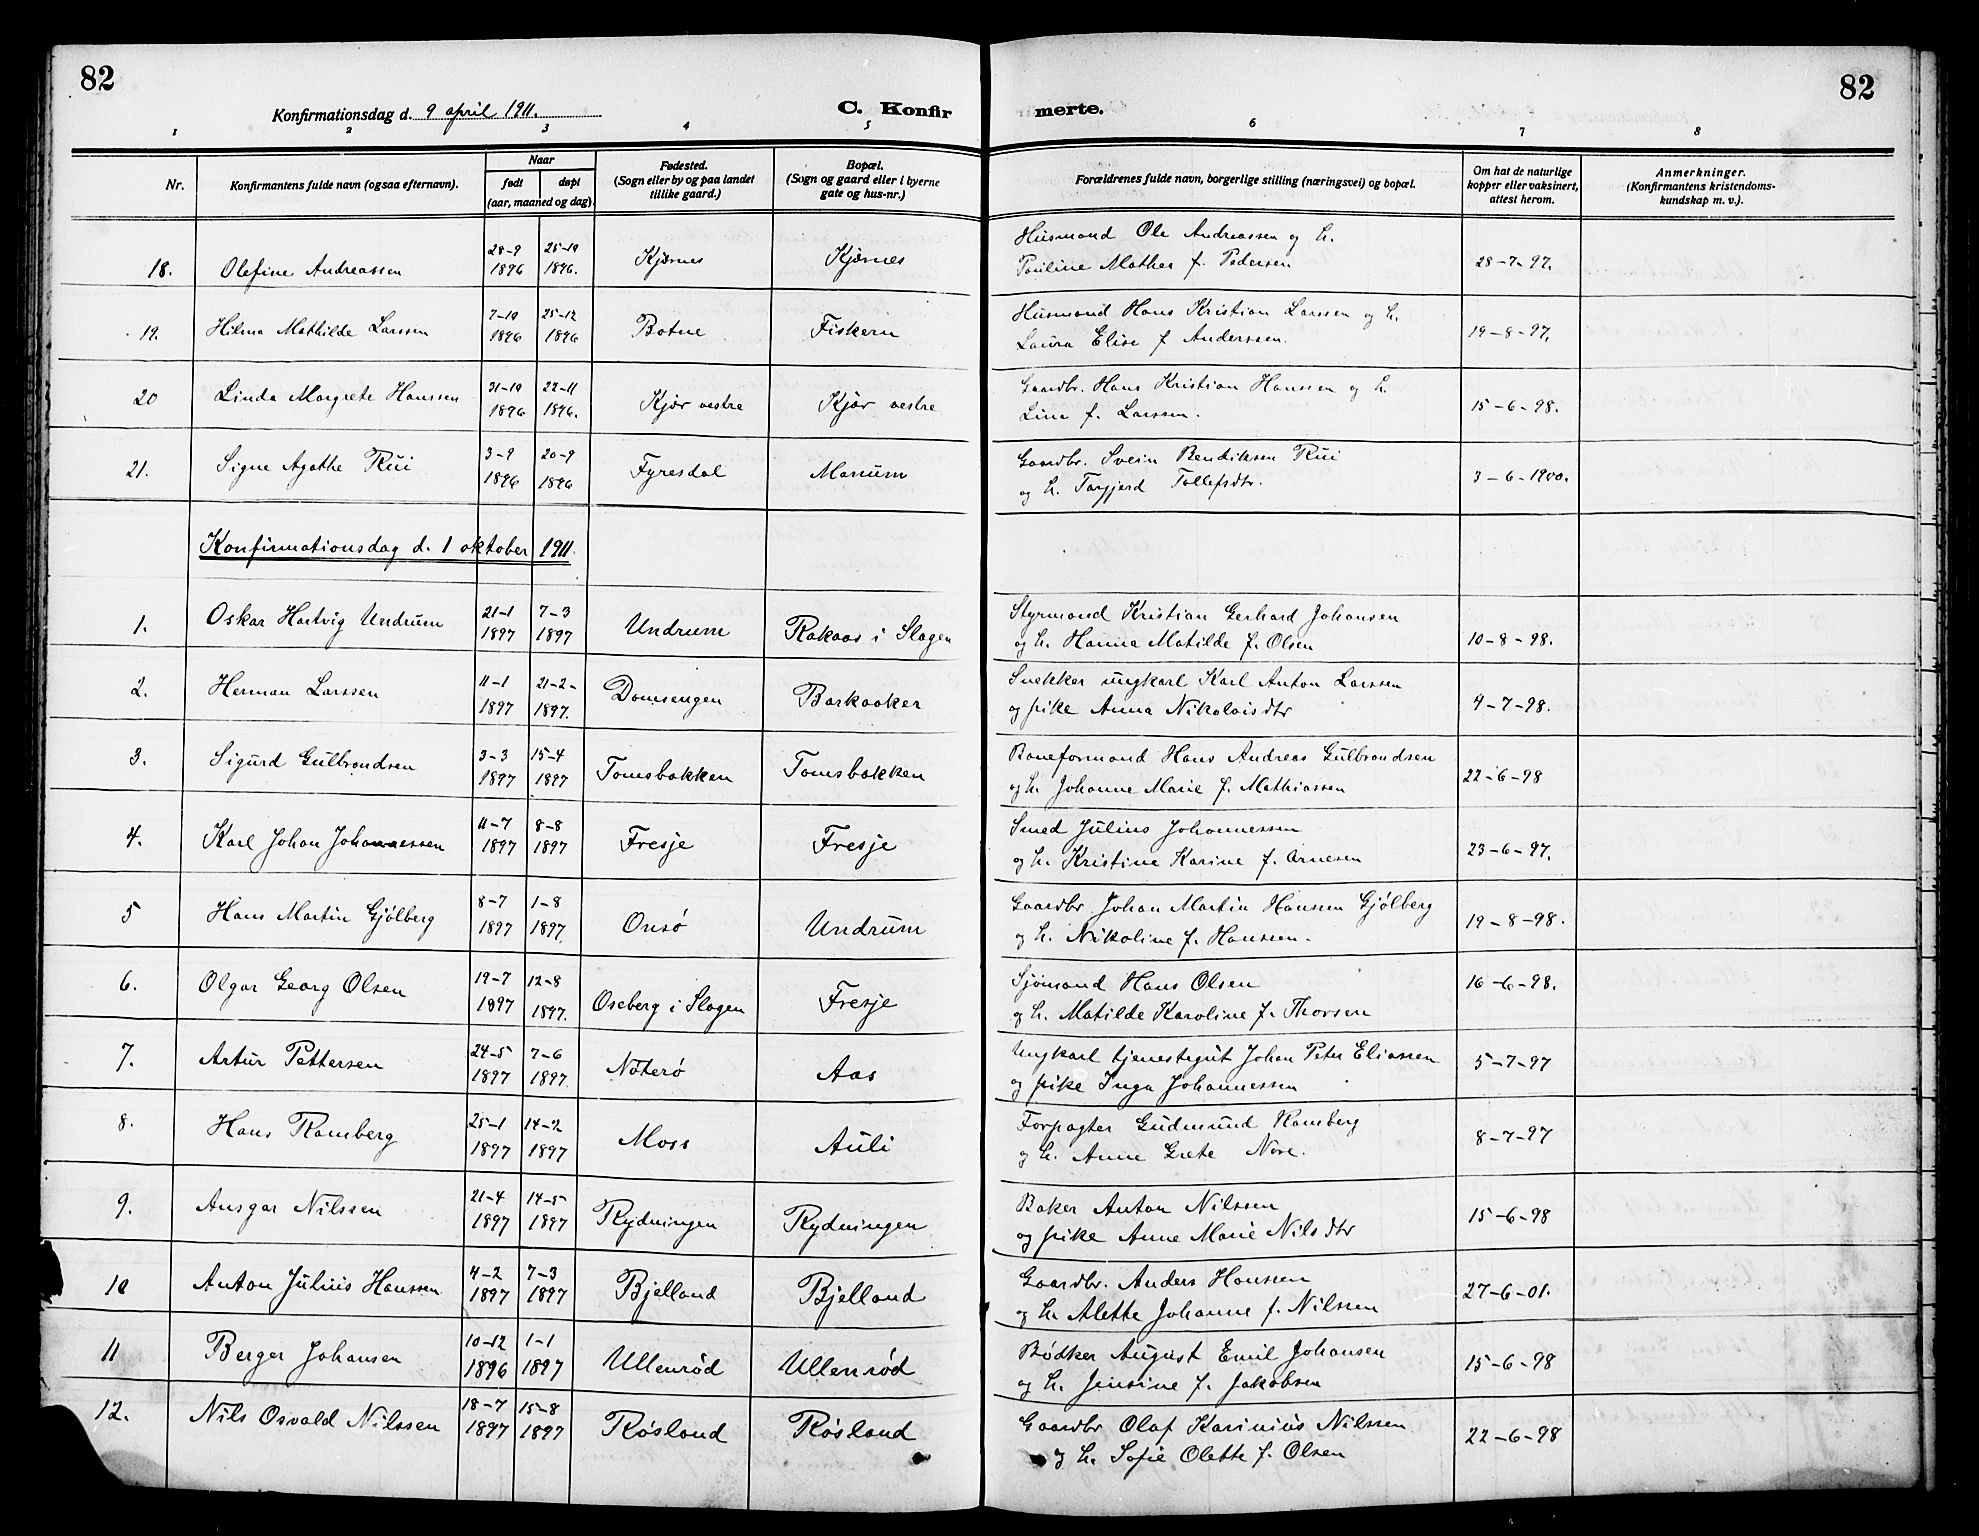 82
82
Konfirmationsdag d. 9 april 1911.
C. Konfir
merte.
1 2 3 4 5 6 7 8
Nr.
Konfirmantens fulde navn (ogsaa efternavn).
Naar
født døpt
(aar, maaned og dag).
Fødested.
(Sogn eller by og paa landet
tillike gaard.)
Bopæl.
(Sogn og gaard eller i byerne
gate og hus-nr.)
Forældrenes fulde navn, borgerlige stilling (næringsvei) og bopæl.
Om hat de naturlige
kopper eller vaksinert,
attest herom.
Anmerkninger.
(Konfirmantens kristendoms-
kundskap m. v.).
28-9 25-10 Husmand Ole Andreassen og h.
18. Olefine Andreassen 1896 1896. Kjærnes Kjærnes Pauline Mathea f. Pedersen 28-7-97.
7-10 25-12 Husmand Hans Kristian Larssen og h.
19. Hilma Mathilde Larssen 1896 1896 Botne Fiskern Laura Elise f Anderssen. 19-8-97.
31-10 22-11 Gaardbr. Hans Kristian Hanssen og h.
20 Linda Margrete Hanssen 1896 1896. Kjær vestre Kjær vestre Line f. Larssen. 15-6-98.
3-9 20-9 Gaardbr. Svein Bendiksen Rui
21. Signe Agathe Rui 1896 1896 Fyresdal Manum og h. Targjerd Tollefsdtr. 3-6-1900.
Konfirmationsdag d. 1 oktober 1911.
21-1 7-3 Styrmand Kristian Gerhard Johansen
1. Oskar Hartvig Undrum 1897 1897 Undrum Rakaas i Slagen og h. Hanna Matilde f. Olsen 10-8-98.
11-1 21-2- Snekker ungkarl Karl Anton Larssen
2. Herman Larssen 1897 1897. Domsengen Barkaaker og pike Anna Nikolaisdtr 4-7-98.
3-3 15-4 Baneformand Hans Andreas Gulbrandsen
3. Sigurd Gulbrandsen 1897 1897 Tomsbakken Tomsbakken og h. Johanne Marie f. Mathiassen 22-6-98
11-7 8-8 Smed Julius Johannessen
4. Karl Johan Johannessen 1897 1897 Fresje Fresje og h. Kristine Karine f. Arnesen 23-6-97.
8-7 1-8 Gaardbr Johan Martin Hansen Gjølberg
5 Hans Martin Gjølberg 1897 1897. Onsø Undrum og h. Nikoline f. Hanssen. 19-8-98.
19-7 12-8 Sjømand Hans Olsen 16-6-98.
6. Olgar Georg Olsen 1897 1897. Oseberg i Slagen Fresje og h. Matilde Karoline f. Thorsen
24-5 7-6 Ungkarl tjenestegut Johan Peter Eliassen
7. Artur Pettersen 1897 1897. Nøterø Aas og pike Inga Johannessen 5-7-97
25-1 14-2 Forpagter Gudmund Ramberg
8. Hans Ramberg 1897 1897 Moss Auli og h. Anne Grete Nore. 8-7-97
21-4 14-5 Baker Anton Nilssen
9. Ansgar Nilssen 1897 1897 Rydningen Rydningen og pike Anne Marie Nilsdtr 15-6-98
4-2 7-3 Gaardbr. Anders Hanssen
10 Anton Julius Hanssen 1897 1897 Bjelland Bjelland og h. Alette Johanne f. Nilssen 27-6-01.
10-12 1-1 Bødker August Emil Johansen
11 Berger Johansen 1896 1897 Ullenrød Ullenrød og h. Jensine f. Jakobsen 15-6-98
18-7 15-8 Gaardbr Olaf Karinius Nilssen
12. Nils Osvald Nilssen 1897 1897 Røsland Røsland og h. Sofie Olette f. Olsen 22-6-98